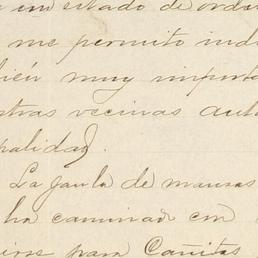 un estado de orde
me permito indi
bién muy importa
otras vecinas auto
palidad.
La jaula de
ha caminar con
para Cañitas